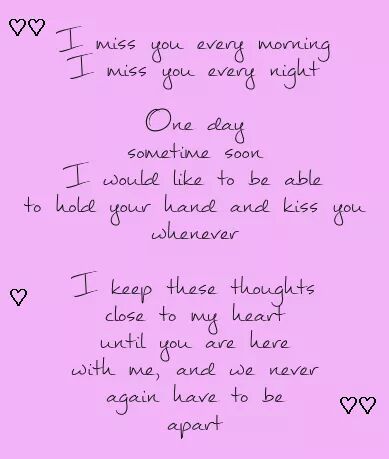 I miss you every morning
I miss you every night
One day
sometime soon
I would like to be able
to hold your hand and kiss you
whenever
I keep these thoughts
close to my heart
until you are here
with me, and we never
again have to be
apart